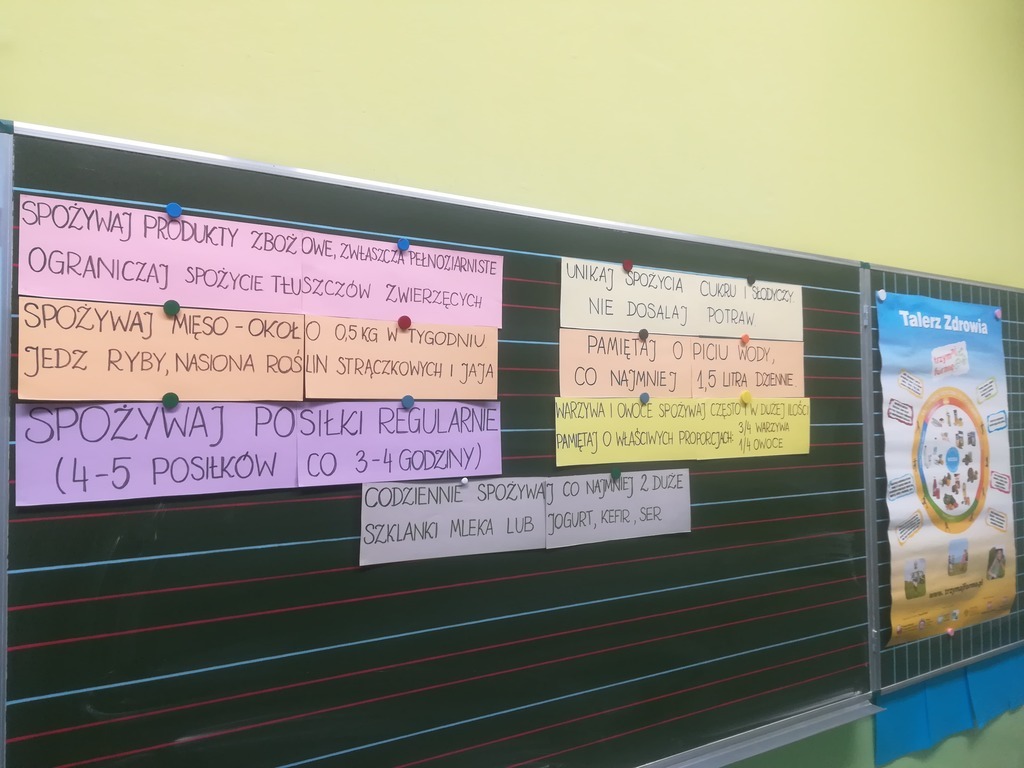 SPOŻYWAJ PRODUKTY ZBOŻOWE, ZWŁASZCZA PEŁNOZIARNISTE
OGRANICZAJ SPOŻYCIE TŁUSZCZÓW ZWIERZĘCYCH
SPOŻYWAJ MIĘSO - OKOŁO 0,5 KG W TYGODNIU
JEDZ RYBY, NASIONA ROŚLIN STRĄCZKOWYCH I JAJA
SPOŻYWAJ POSIŁKI REGULARNIE
(4-5 POSIŁKÓW CO 3-4 GODZINY)
UNIKAJ SPOŻYCIA CUKRU I SŁODYCZY
NIE DOSALAJ POTRAW
PAMIĘTAJ O PICIU WODY,
CO NAJMNIEJ 1,5 LITRA DZIENNIE
WARZYWA I OWOCE SPOŻYWAJ CZĘSTO I W DUŻEJ ILOŚCI
PAMIĘTAJ O WŁAŚCIWYCH PROPORCJACH: 3/4 WARZYWA
1/4 OWOCE
CODZIENNIE SPOŻYWAJ CO NAJMNIEJ 2 DUŻE
SZKLANKI MLEKA LUB JOGURT, KEFIR, SER
Talerz Zdrowia
trzymaj
formę
www.trzymajforme.pl